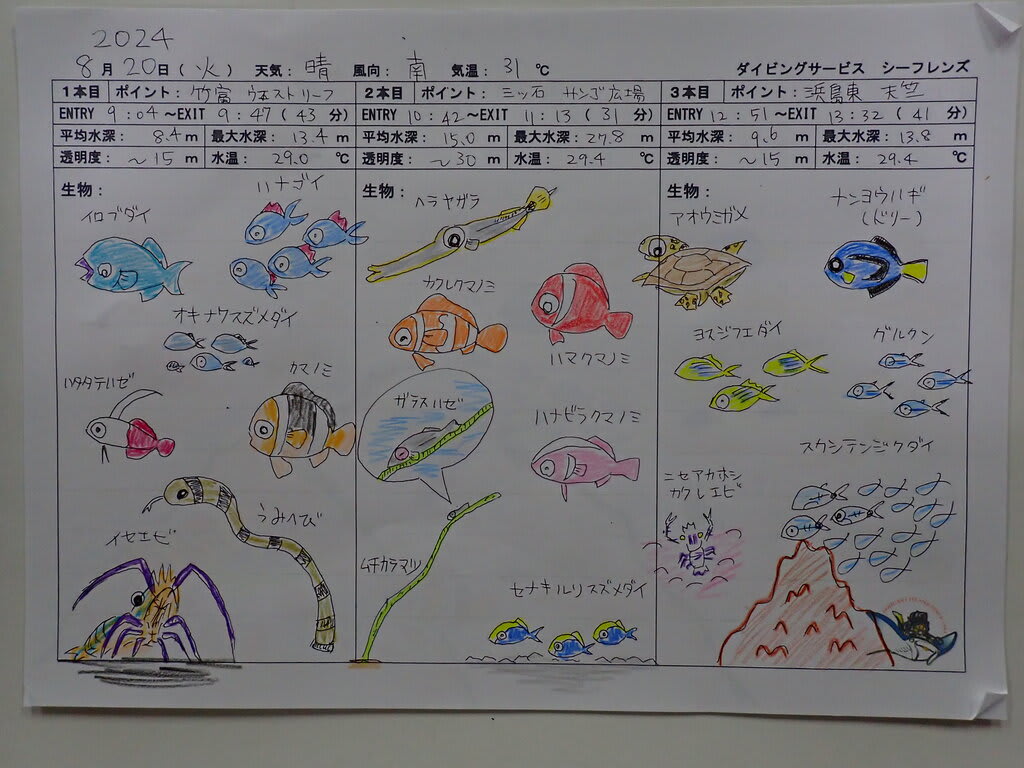 2024
8月20日(火) 天気:晴 風向:南 気温:31℃ ダイビングサービス シーフレンズ
1本目 ポイント:竹富 ウエストリーフ
ENTRY 9:04~EXIT 9:47(43分)
平均水深: 8.4m 最大水深: 13.4m
透明度: ~15m 水温: 29.0℃
生物:
イロブダイ
ハナゴイ
オキナワスズメダイ
ハタタテハゼ
クマノミ
うみへび
イセエビ
2本目 ポイント:三ッ石 サンゴ広場
ENTRY 10:42~EXIT 11:13(31分)
平均水深: 15.0m 最大水深: 27.8m
透明度: ~30m 水温: 29.4℃
生物:
ヘラヤガラ
カクレクマノミ
ハマクマノミ
ガラスハゼ
ハナビラクマノミ
ムチカラマツ
セナキルリスズメダイ
3本目 ポイント:浜島東 天竺
ENTRY 12:51~EXIT 13:32(41分)
平均水深: 9.6m 最大水深: 13.8m
透明度: ~15m 水温: 29.4℃
生物:
アオウミガメ
ナンヨウハギ
(ドリー)
ヨスジフエダイ
グルクン
スカシテンジクダイ
ニセアカホシ
カクレエビ